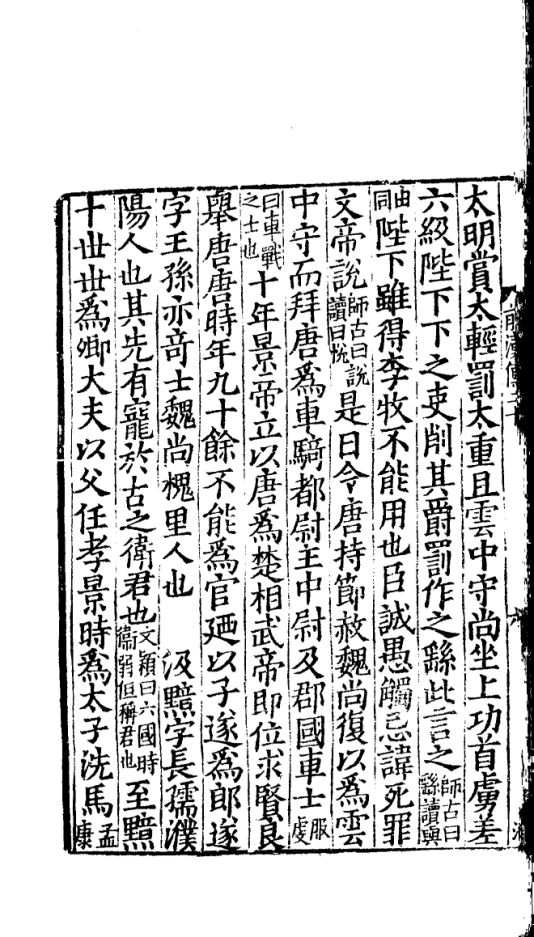 太明賞太輕罰太重且雲中守尚坐上功首虜差
六級陛下下之吏削其爵罰作之繇此言之師古曰繇讀與
由同陛下雖得李牧不能用也臣誠愚觸忌諱死罪
文帝說師古曰說讀曰恱是日令唐持節赦魏尚復以爲雲
中守而拜唐爲車騎都尉主中尉及郡國車士服虔
曰車戰之士也十年景帝立以唐爲楚相武帝即位求賢良
舉唐唐時年九十餘不能爲官廼以子遂爲郎遂
字王孫亦奇士魏尚槐里人也 汲黯字長孺濮
陽人也其先有寵於古之衛君也文穎曰六國時衛弱但稱君也至黯
十世世爲卿大夫以父任孝景時爲太子洗馬孟康